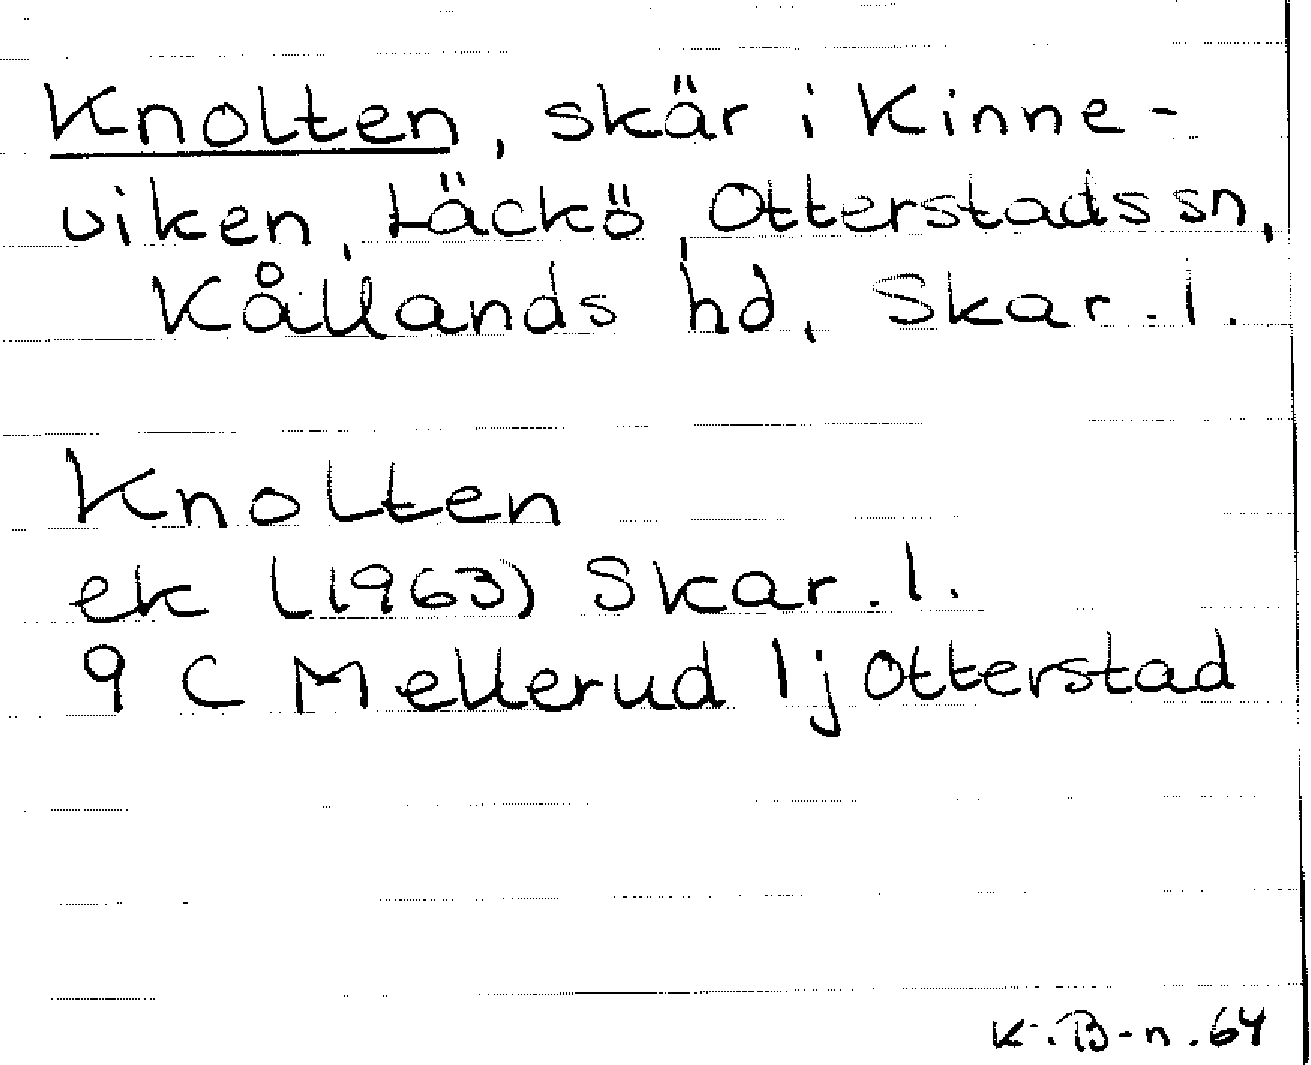 Knolten, skär i Kinne-
viken, Läckö, Otterstads sn,
Kållands hd, Skar. l.
Knolten
ek (1963) Skar. l.
9 C Mellerud 1j Otterstad
K. B-n. 64